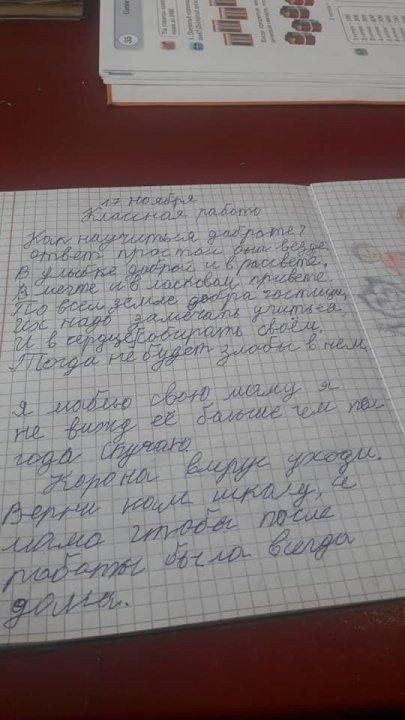 35
17 ноября
Классная работа
Как научиться даброте?
ответ простой она везде.
В улыбке доброй и в расвете,
В мечте и в ласковом привете
По всей земле добра частицы,
Их надо замечать учиться,
И в сердце собирать своём,
Тогда не будет злобы в нем.
Я люблю свою маму я
не вижу её больше чем пол
года скучаю.
Корона вирус уходи.
Верни нам школу, а
мама чтобы после
работы была всегда
дома.